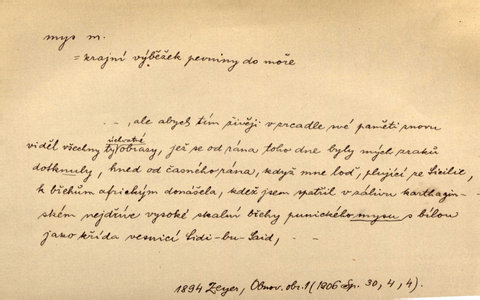 mys m.
= krajní výběžek pevniny do moře
..., ale abych tím živěji v zrcadle mé paměti znovu
úchvatné
viděl všechny ty obrazy, jež se od rána toho dne byly mých zraků
dotknuly, hned od časného rána, když mne loď, plující ze Sicilie,
k břehům africkým donášela, kdež jsem spatřil v zálivu karthagin-
ském nejdříve vysoké skalní břehy punického mysu s bílou
jako křída vesnicí Sidi-bu-Said, - -
1894 Zeyer, Obnov. obr. 1 (1906 Sp. 30, 4, 4).